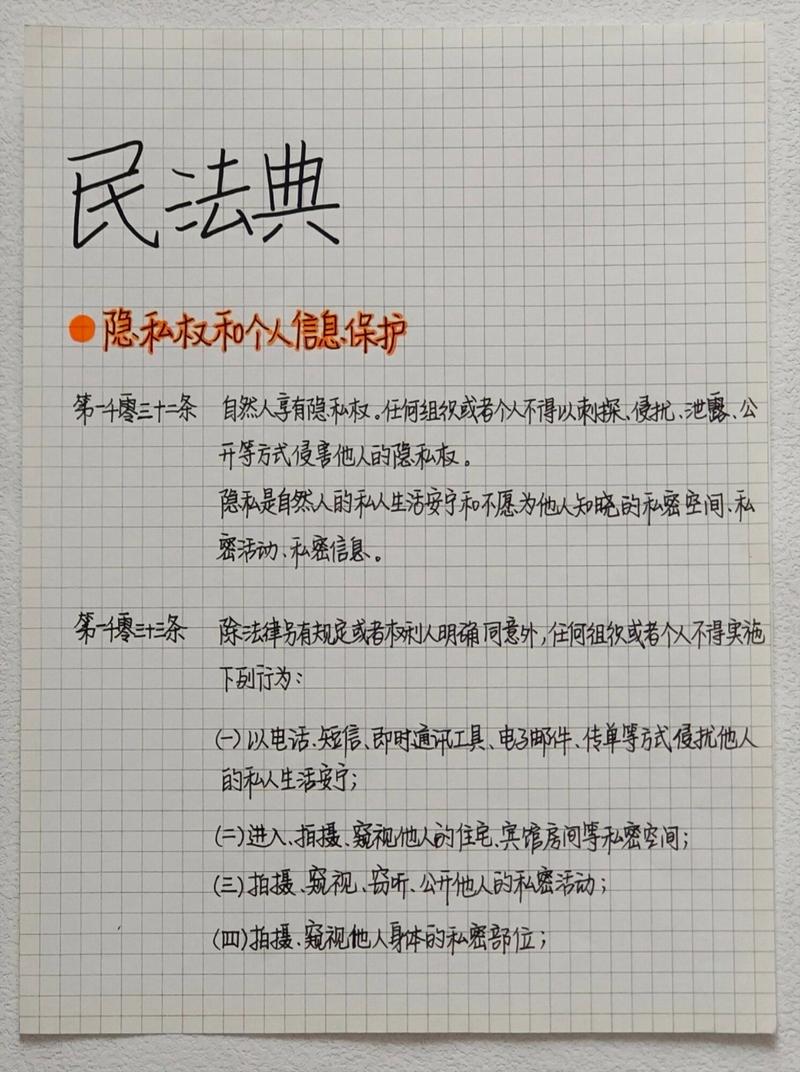 民法典
隐私权和个人信息保护
第一千零三十二条 自然人享有隐私权。任何组织或者个人不得以刺探、侵扰、泄露、公
开等方式侵害他人的隐私权。
隐私是自然人的私人生活安宁和不愿为他人知晓的私密空间、私
密活动、私密信息。
第一千零三十三条 除法律另有规定或者权利人明确同意外,任何组织或者个人不得实施
下列行为:
(一)以电话、短信、即时通讯工具、电子邮件、传单等方式侵扰他人
的私人生活安宁;
(二)进入、拍摄、窥视他人的住宅、宾馆房间等私密空间;
(三)拍摄、窥视、窃听、公开他人的私密活动;
(四)拍摄、窥视他人身体的私密部位;